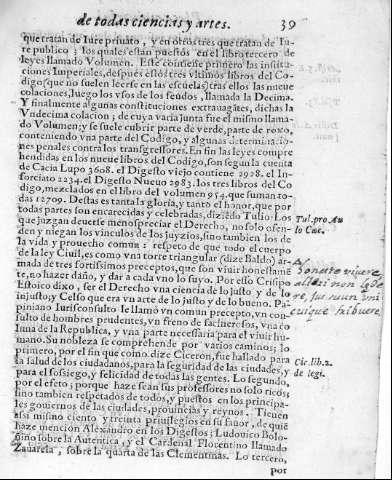 de todas ciencias y artes. 39
que tratan de Iure priuato, y en otros tres que tratan de Iu-
re publico; los quales estan puestos en el libro tercero de
leyes llamado Volumen. Este contiene primero las institu-
ciones Imperiales, despues estos tres vltimos libros del Co-
digo (que no suelen leerse en las escuelas) tras ellos las nueue
colaciones, luego los vsos de los feudos, llamada la Decima.
Y finalmente algunas constituciones extrauagãtes, dichas la
Vndecima colacion; de cuya varia junta fue el mismo llama-
do Volumen; y se suele cubrir parte de verde, parte de roxo,
conteniendo vna parte del Codigo, y algunas determinacio-
nes penales contra los transgressores. En fin las leyes compre-
hendidas en los nueue libros del Codigo, son segun la cuenta
de Cacia Lupo 3608. el Digesto viejo contiene 2928. el In-
forciato 2234. el Digesto Nueuo 2983. los tres libros del Co
digo, mezclados en el libro del volumen 954. que suman to-
das 12709. Destas es tanta la gloria, y tanto el honor, que por
todas partes son encarecidas y celebradas, diziẽdo Tulio: Los
que juzgan deuerse menospreciar el Derecho, no solo ofen-
den y niegan los vinculos de los juyzios, sino tambien los de
la vida y prouecho comun: respeto de que todo el cuerpo
de la ley Ciuil, es como vna torre triangular (dize Baldo) ar-
mada de tres fortissimos preceptos, que son viuir honestamẽ
te, no hazer daño, y dar a cada vno lo suyo. Por esso Crispo
Estoico dixo, ser el Derecho vna ciencia de lo justo y de lo
injusto; y Celso que era vn arte de lo justo y de lo bueno. Pa-
piniano Iurisconsulto le llamò vn comun precepto, vn con-
sulto de hombres prudentes, vn freno de facinerosos, vna co
luna de la Republica, y vna parte necessaria para el viuir hu-
mano. Su nobleza se comprehende por varios caminos; lo
primero, por el fin que como dize Ciceron, fue hallado para
la salud de los ciudadanos, para la seguridad de las ciudades, y
para el sossiego, y felicidad de todas las gentes. Lo segundo,
por el efeto; porque haze sean sus professores no solo ricos;
sino tambien respetados de todos, y puestos en los principa-
les gouiernos de las ciudades, prouincias y reynos. Tienen
assi mismo ciento y treinta priuilegios en su fauor, de quien
haze mencion Alexandro en los Digestos; Ludouico Bolo-
gino sobre la Autentica, y el Cardenal Florentino llamado
Zauarela, sobre la quarta de las Clementinas. Lo tercero,
por
Tul. pro Au
lo Cæc.
Honeste vivere,
alteri non læde
re, jus suum uni
cuique tribuere
Cic. lib. 2.
de legi.